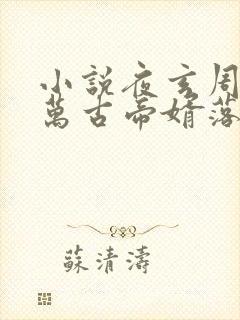 小說夜玄周
萬古帝婿落
蘇清濤